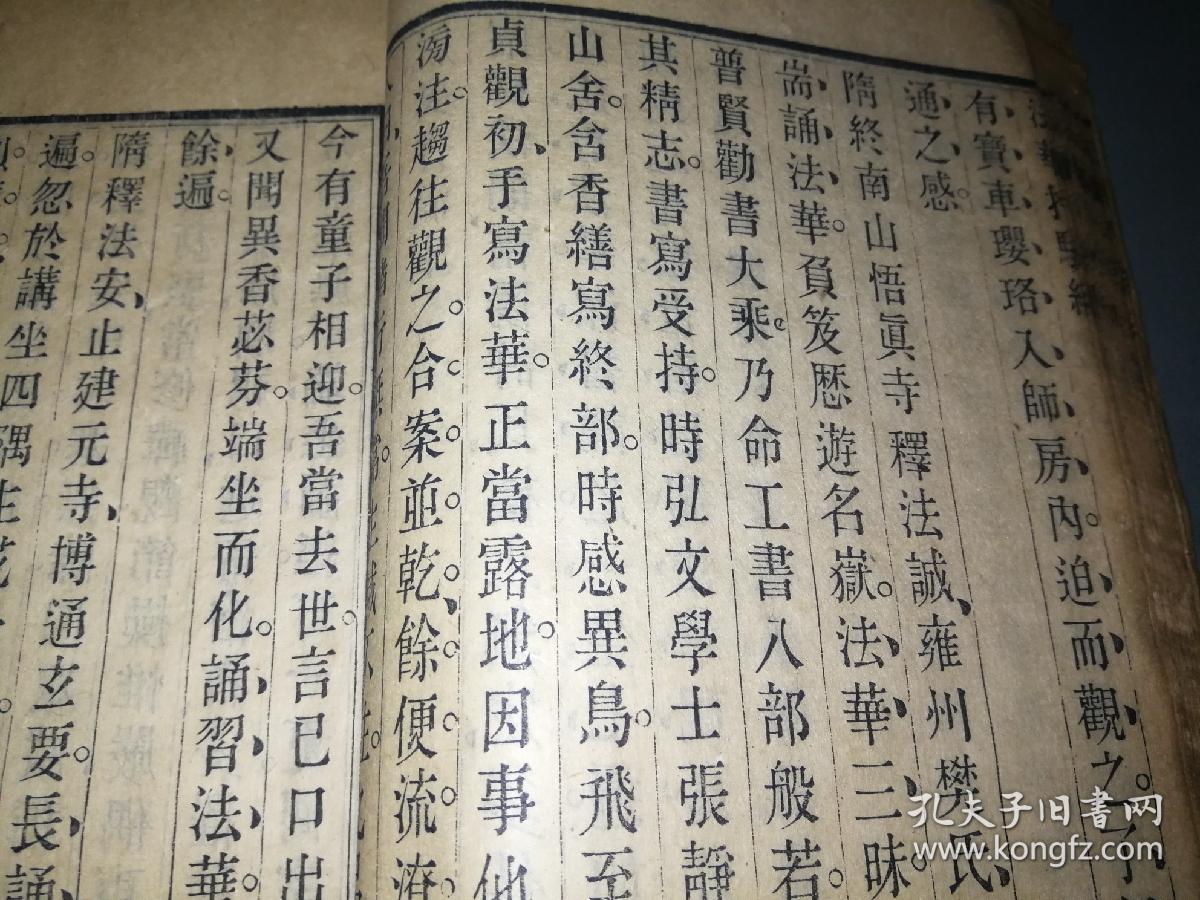 有寶車瓔珞入師房內。迫而觀之。了
通之感。
隋終南山悟眞寺釋法誠、雍州樊氏、
耑誦法華。負笈歷遊名嶽。法華三昧。
普賢勸書大乘。乃命工書八部般若。
其精志。書寫受持。時弘文學士張靜
山舍。含香繕寫終部。時感異鳥。飛至
貞觀初、手寫法華。正當露地。因事他
澍注。趨往觀之。台案並乾、餘便流潦。
今有童子相迎。吾當去世。言已口出
又聞異香苾芬。端坐而化。誦習法華
餘遍。
隋釋法安、止建元寺、博通玄要。長誦
遍。忽於講坐四隅生花
孔夫子旧書网
www.kongfz.com